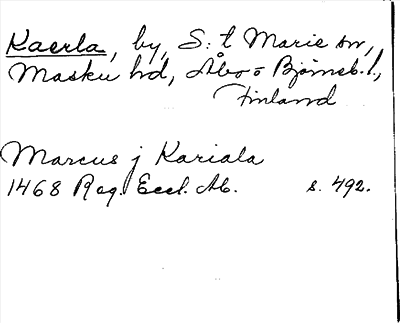 Kaerla, by, S:t Marie sn,
Masku hd, Åbo o Björneb. l.,
Finland
Marcus j Kariala
1468 Reg. Eccl. Ab. s. 492.